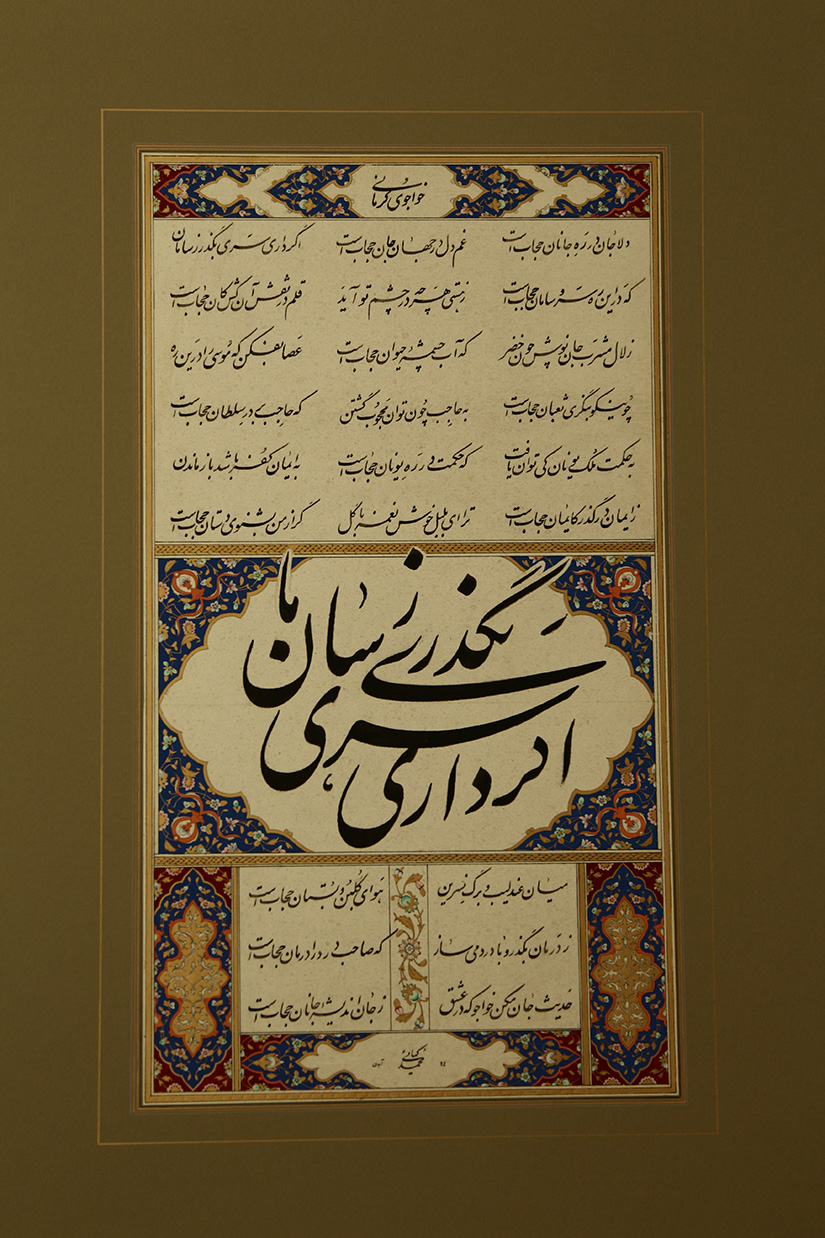 خواجوی کرمانی
دلا جان در ره جانان حجاب است غم دل در جهان جان حجاب است اگر داری سری بگذر ز سامان
که در این ره سر و سامان حجاب است ز هستی هر چه در چشم تو آید قلم در نقش آن کش کان حجاب است
زلال مشرب جان نوش چون خضر که آب چشمه حیوان حجاب است عصا بفکن که موسی را در این ره
چو نیکو بنگری ثعبان حجاب است به حاجب چون توان محجوب گشتن که حاجب بر در سلطان حجاب است
به حکمت ملک یونان کی توان یافت که حکمت در ره یونان حجاب است به ایمان کفر باشد باز ماندن
ز ایمان در گذر کایمان حجاب است ترا ای بلبل خوش نغمه با گل گر از من بشنوی دستان حجاب است
اگر داری سری بگذر ز سامان
میان عندلیب و برگ نسرین هوای گلبن و بستان حجاب است
ز درمان بگذر و با درد می ساز که صاحب درد را درمان حجاب است
حدیث جان مکن خواجو که در عشق ز جان اندیشه جانان حجاب است